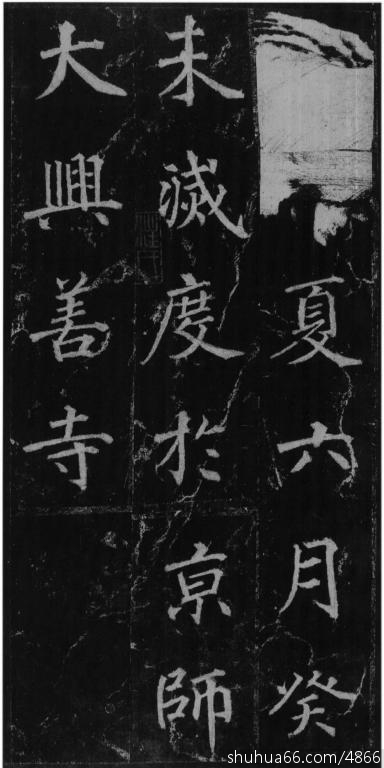 夏六月癸
未滅度於京師
大興善寺
shuhua66.com/4866